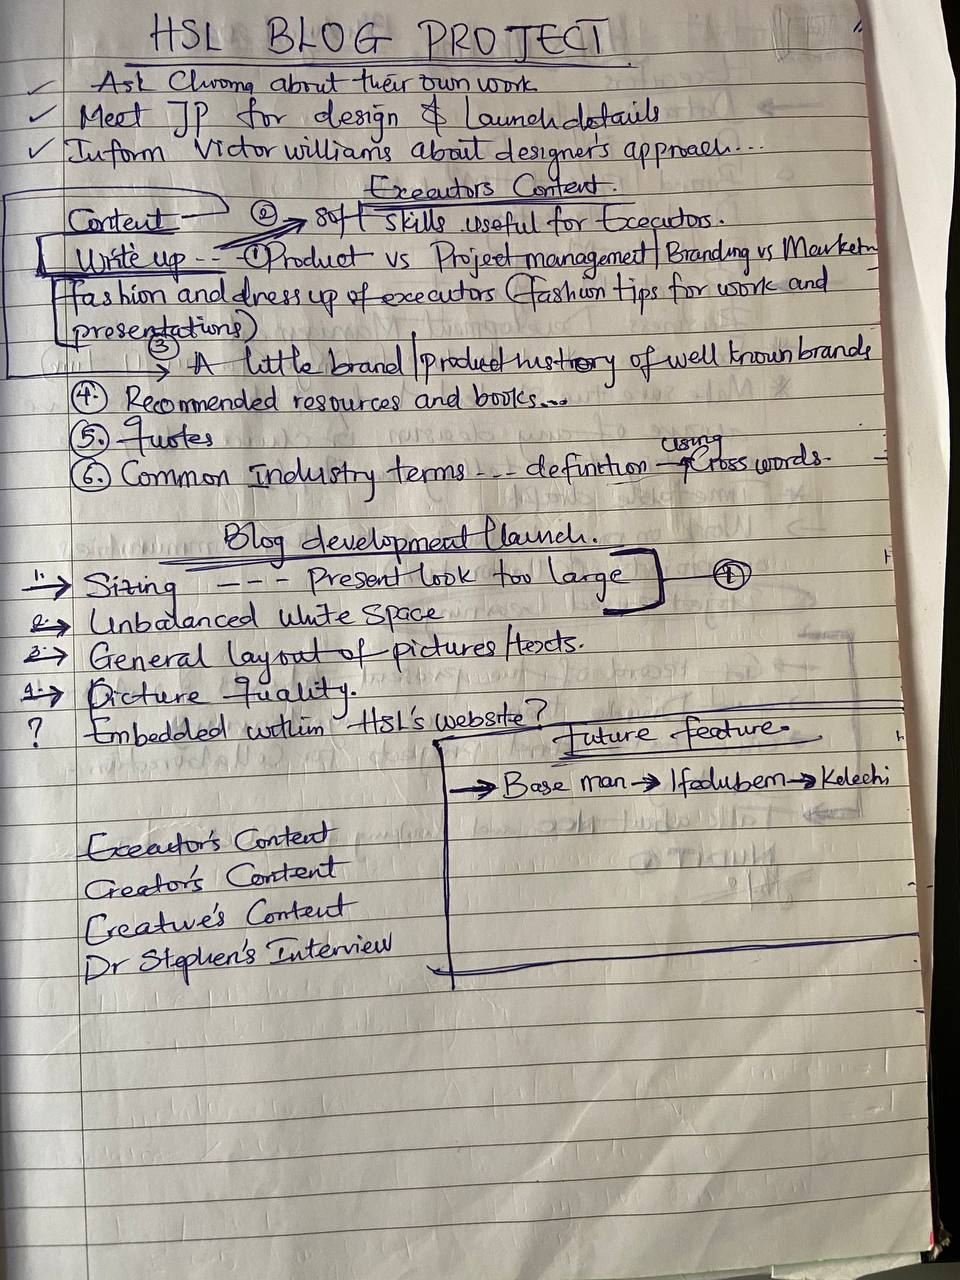 HSL BLOG PROJECT
✓ Ask Chioma about their own work
✓ Meet JP for design & Launch details
✓ Inform Victor williams about designer's approach...
Executors Content.
Content ② → Soft skills useful for Executors.
Write up -- ① Product vs Project management | Branding vs Marketn
fashion and dress up of executors (fashion tips for work and
presentations)
③ → A little brand/product history of well known brands
④. Recommended resources and books...
⑤. Quotes
⑥. Common Industry terms --- definition → using Cross words.
Blog development/launch.
1. → Sizing --- Present look too large
2. → Unbalanced White Space
3. → General layout of pictures/texts.
4. → Picture quality.
? Embedded within HSL's website?
Future feature.
→ Base man → Ifedubem → Kelechi
Executor's Content
Creator's Content
Creative's Content
Dr Stephen's Interview